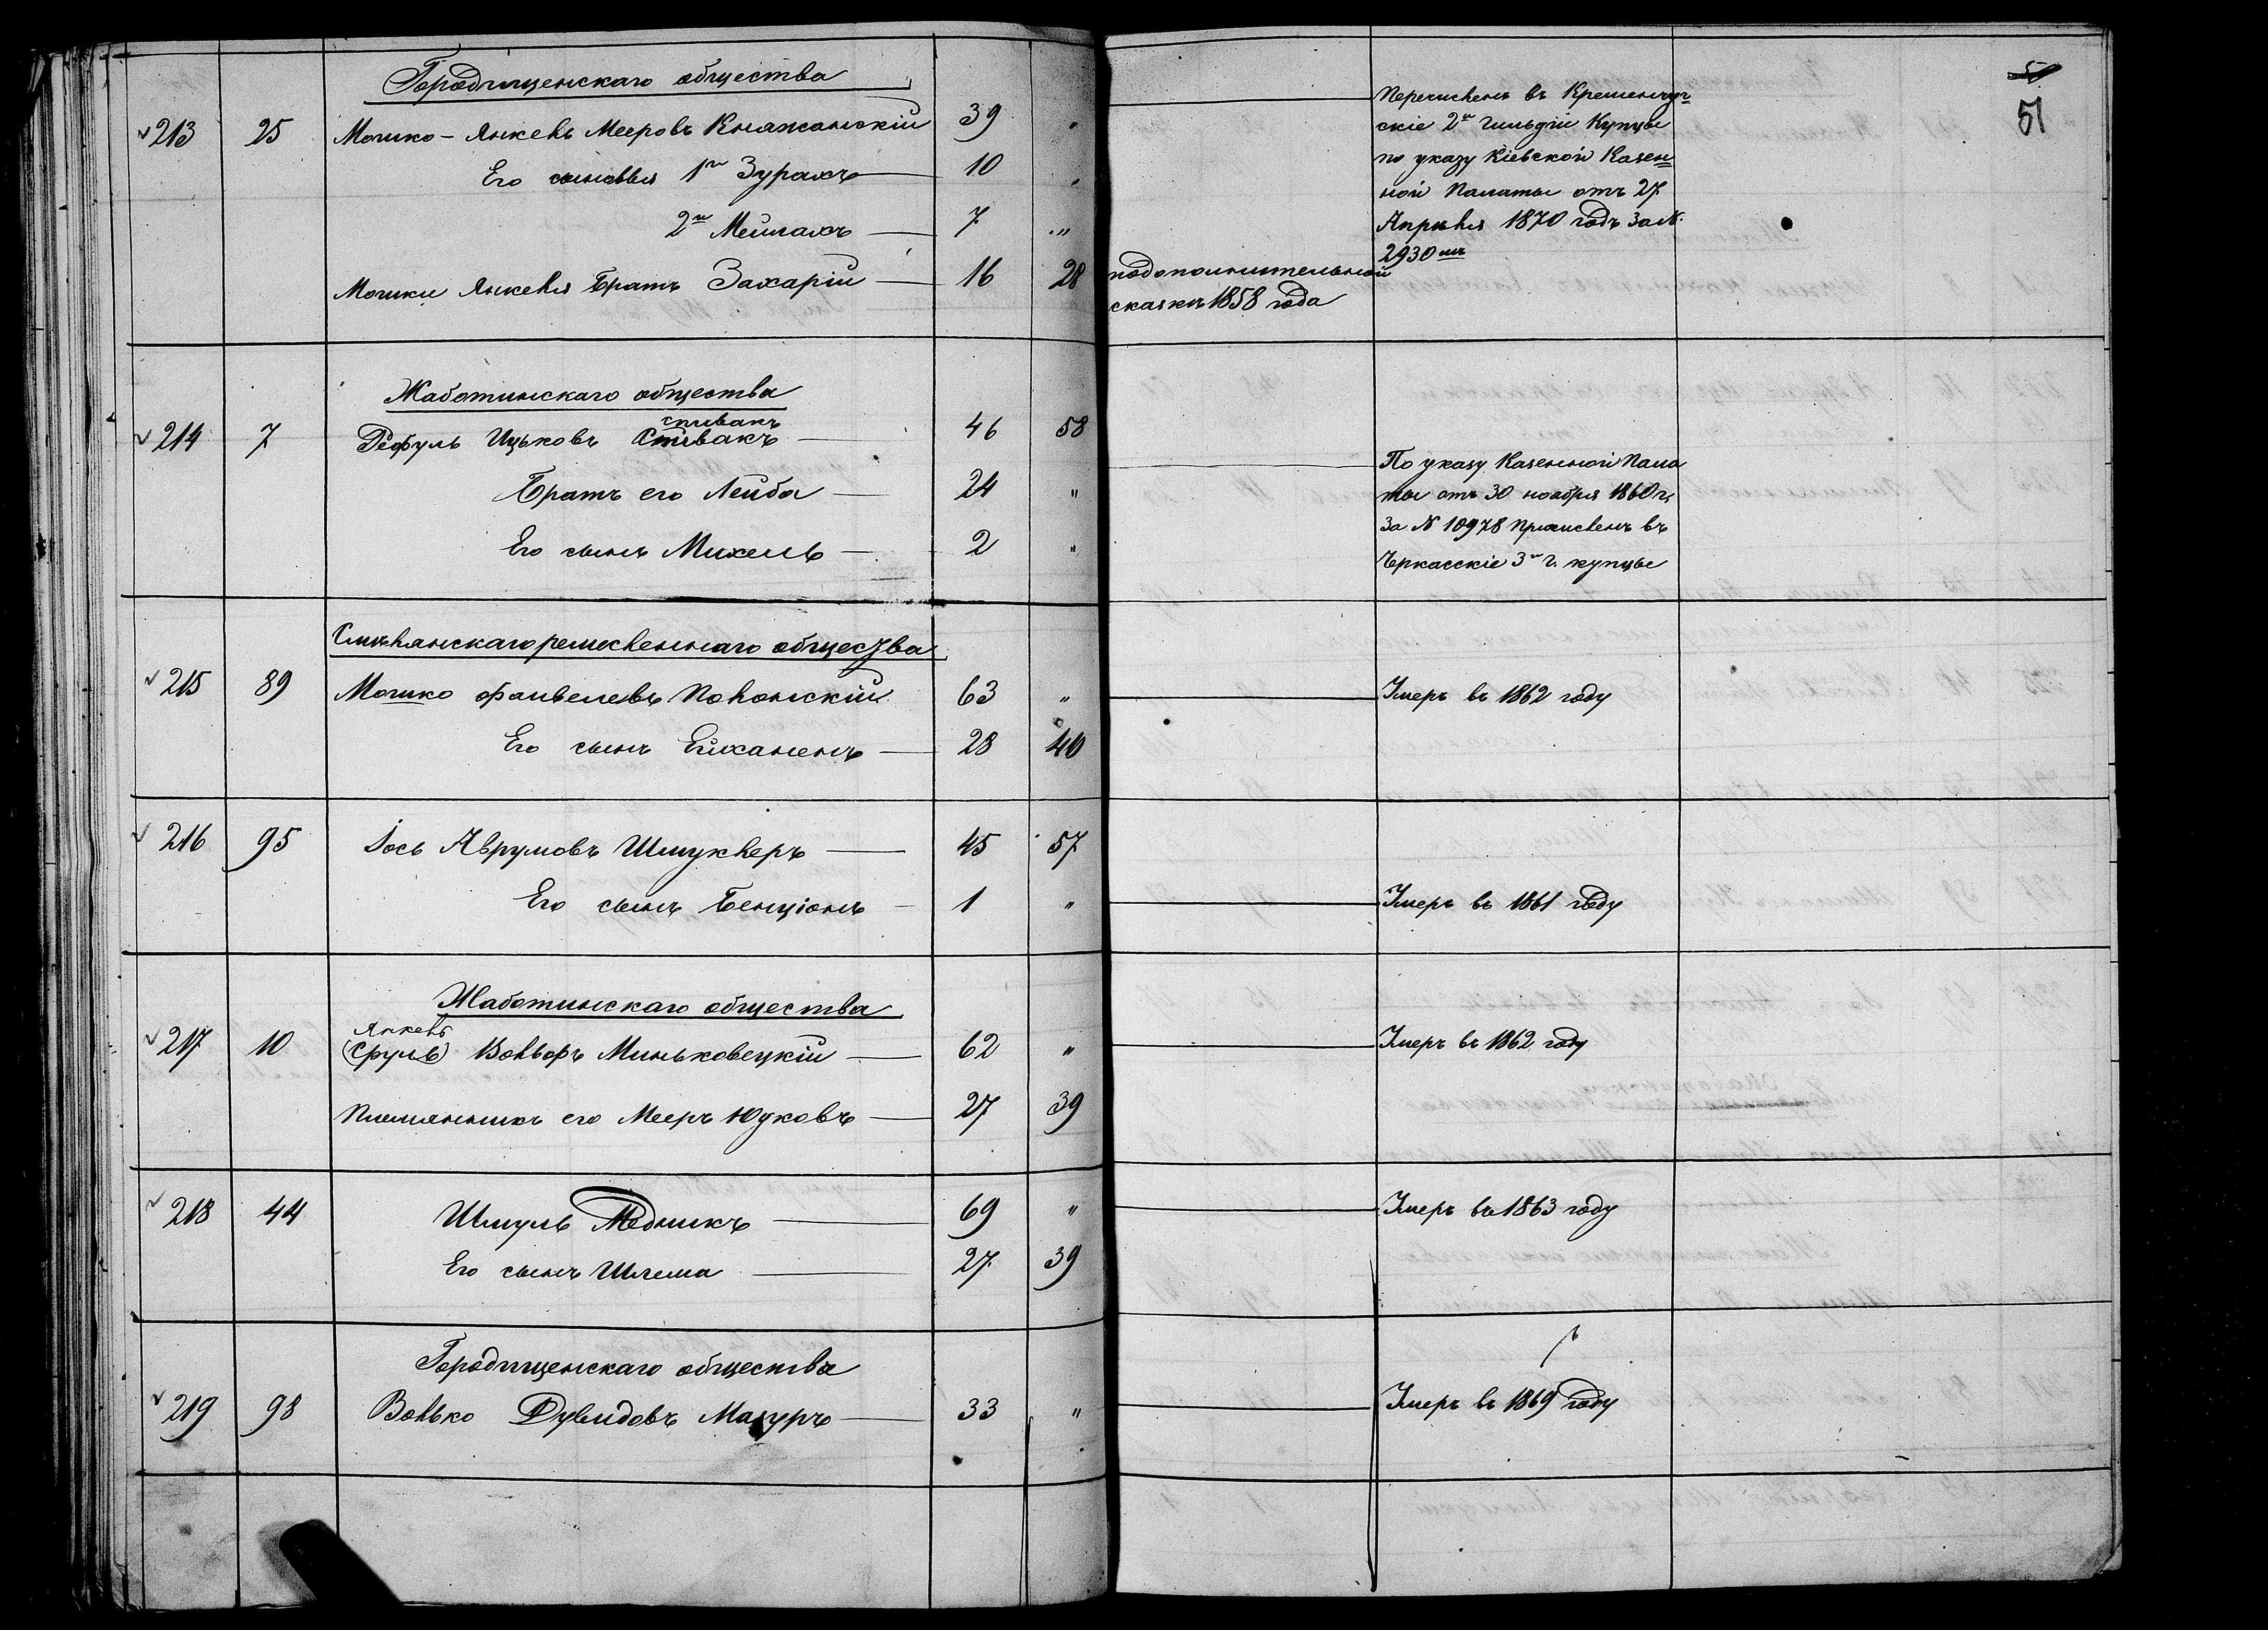 Городищенскаго общества
213 25 Мошко-Янкель Мееровъ Княжанскій 39 "
Его сыновья 1й Зурахъ 10 "
2й Мейлахъ 7 "
Мошки Янкеля братъ Захарій 16 28
Жаботинскаго общества
спивакъ
214 7 Рефуль Ицьковъ Спивакъ 46 58
Братъ его Лейба 24 "
Его сынъ Михель 2 "
Смѣлянскаго ремесленнаго общества
215 89 Мошко Файвелевъ Полонскій 63 "
Его сынъ Елханенъ 28 40
216 95 Іось Аврумовъ Шмуклеръ 45 57
Его сынъ Бенціонъ 1 "
Жаботинскаго общества
Янкель
217 10 (Сруль) Вольфъ Миньковецкій 62 "
Племянникъ его Мееръ Юдковъ 27 39
218 44 Шмуль Медникъ 69 "
Его сынъ Шлема 27 39
Городищенскаго общества
219 98 Волько Дувидовъ Мазуръ 33 "
51
Перечисленъ въ Кременчуг-
скіе 2й Гильдіи Купцы
по указу Кіевской Казен-
ной Палаты отъ 27
Апрѣля 1870 годъ за №
2930мъ
подополнительной
сказкѣ 1858 года
По указу Казенной Пала
ты отъ 30 ноября 1860 г.
за № 10978 причисленъ въ
Черкасскіе 3й г. купцы
Умеръ въ 1862 году
Умеръ въ 1861 году
Умеръ въ 1862 году
Умеръ въ 1863 году
Умеръ въ 1869 году